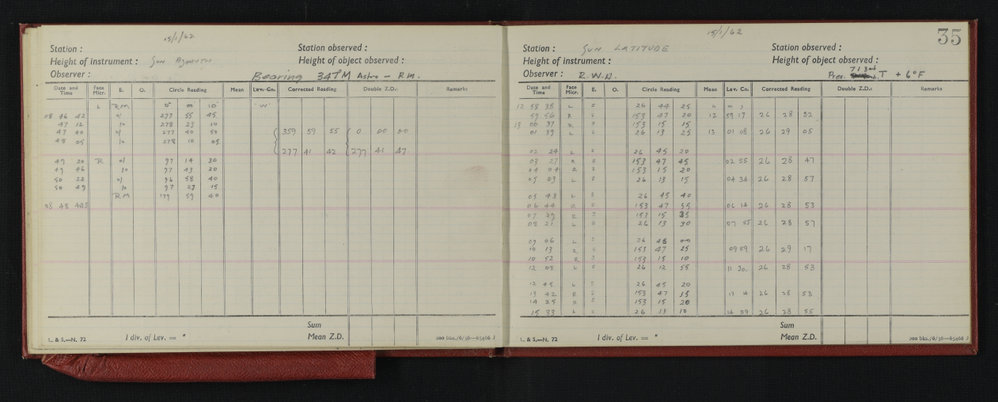 15/1/62
Station :
Station observed :
Height of instrument : Sun Azimuth
Height of object observed :
Observer :
Bearing 34TM Astro - R.M.
Date and Time Face Micr. E. O. Circle Reading Mean Lev.-Co. Corrected Reading Double Z.D.: Remarks
L RM 10
08 46 42 277 55 45
47 12 278 27 10
47 40 277 40 50 359 59 55 0 00 00
48 05 278 10 05
277 41 42 277 41 47
49 20 R 97 14 30
49 46 97 43 20
50 22 96 58 40
50 49 97 27 15
RM 179 59 40
08 48 
Sum
L. & S.—N. 72 1 div. of Lev. = " Mean Z.D. 300 Bks./6/56—65406 J
15/1/62
35
Station : SUN LATITUDE
Station observed :
Height of instrument :
Height of object observed :
Observer : R.W.N.
Pres. 713 T + 6°F
Date and Time Face Micr. E. O. Circle Reading Mean Lev.-Co. Corrected Reading Double Z.D.: Remarks
12 58 38 L 26 44 25
59 56 R 153 47 20 12 59 17 26 28 32
13 00 37 R 153 15 15
01 39 L 26 13 25 13 01 08 26 29 05
02 24 L 26 45 20
03 27 R 153 47 45 02 55 26 28 47
04 04 R 153 15 20
05 03 L 26 13 15 04 34 26 28 57
05 43 L 26 45 40
06 44 R 153 47 55 06 14 26 28 53
07 29 R 153 15 35
08 21 L 26 13 30 07 55 26 28 57
09 06 L 26 46 00
10 13 R 153 47 25 09 09 26 29 17
10 52 R 153 15 10
12 09 L 26 12 55 11 30 26 28 53
12 45 L 26 45 20
13 42 R 153 47 15 13 14 26 28 53
14 25 R 153 15 20
15 33 L 26 13 10 14 59 26 28 55
Sum
L. & S.—N. 72 1 div. of Lev. = " Mean Z.D. 300 Bks./6/56—65406 J